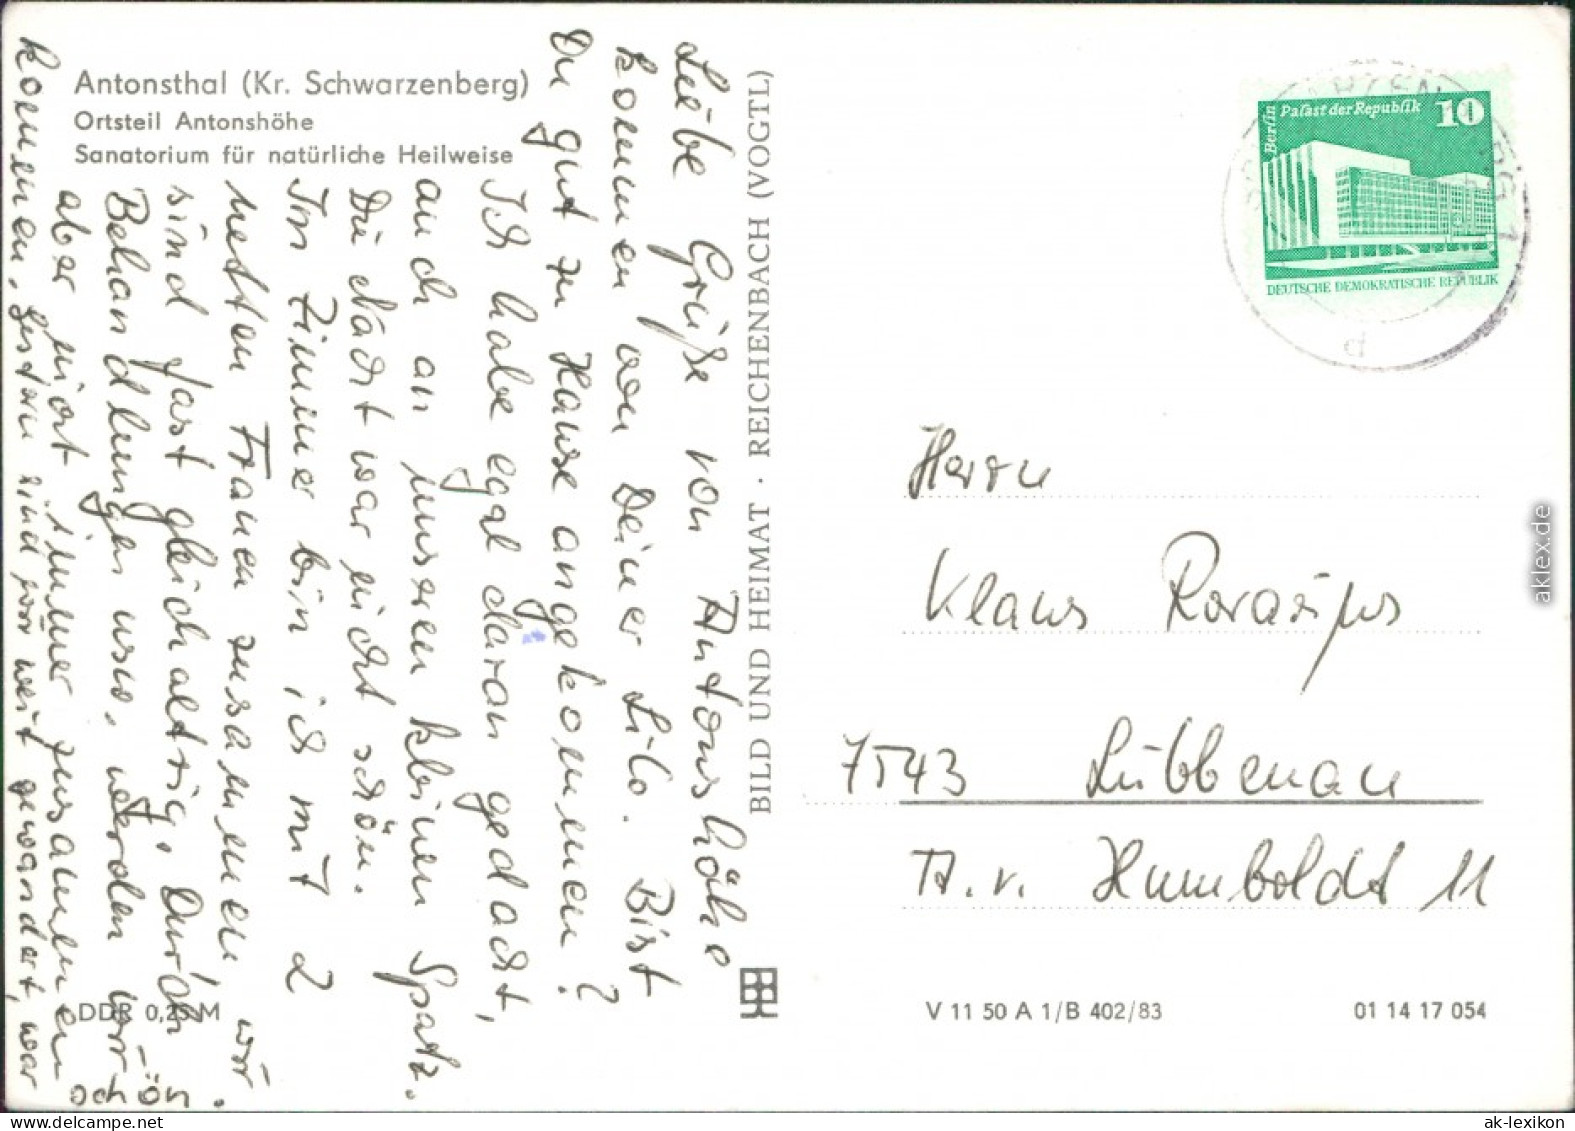 Antonsthal (Kr. Schwarzenberg)
Ortsteil Antonshöhe
Sanatorium für natürliche Heilweise
Liebe Grüße von Antonshöhe
kommen von Deiner Lilo. Bist
Du gut zu Hause angekommen?
Ich habe egal daran gedacht,
auch an unseren kleinen Spatz.
Die Nacht war nicht schön.
Im Zimmer bin ich mit 2
netten Frauen zusammen, wir
sind fast gleichaltrig. Durch
Behandlungen usw. werden wir
aber nicht immer zusammen
kommen. Gestern sind wir weit gewandert, war
schön.
DDR 0,25 M
BILD UND HEIMAT · REICHENBACH (VOGTL)
Berlin Palast der Republik 10
DEUTSCHE DEMOKRATISCHE REPUBLIK
Herrn
Klaus
7543 Lübbenau
A. v. Humboldt 11
V 11 50 A 1/B 402/83
01 14 17 054
aklex.de
ak-lexikon